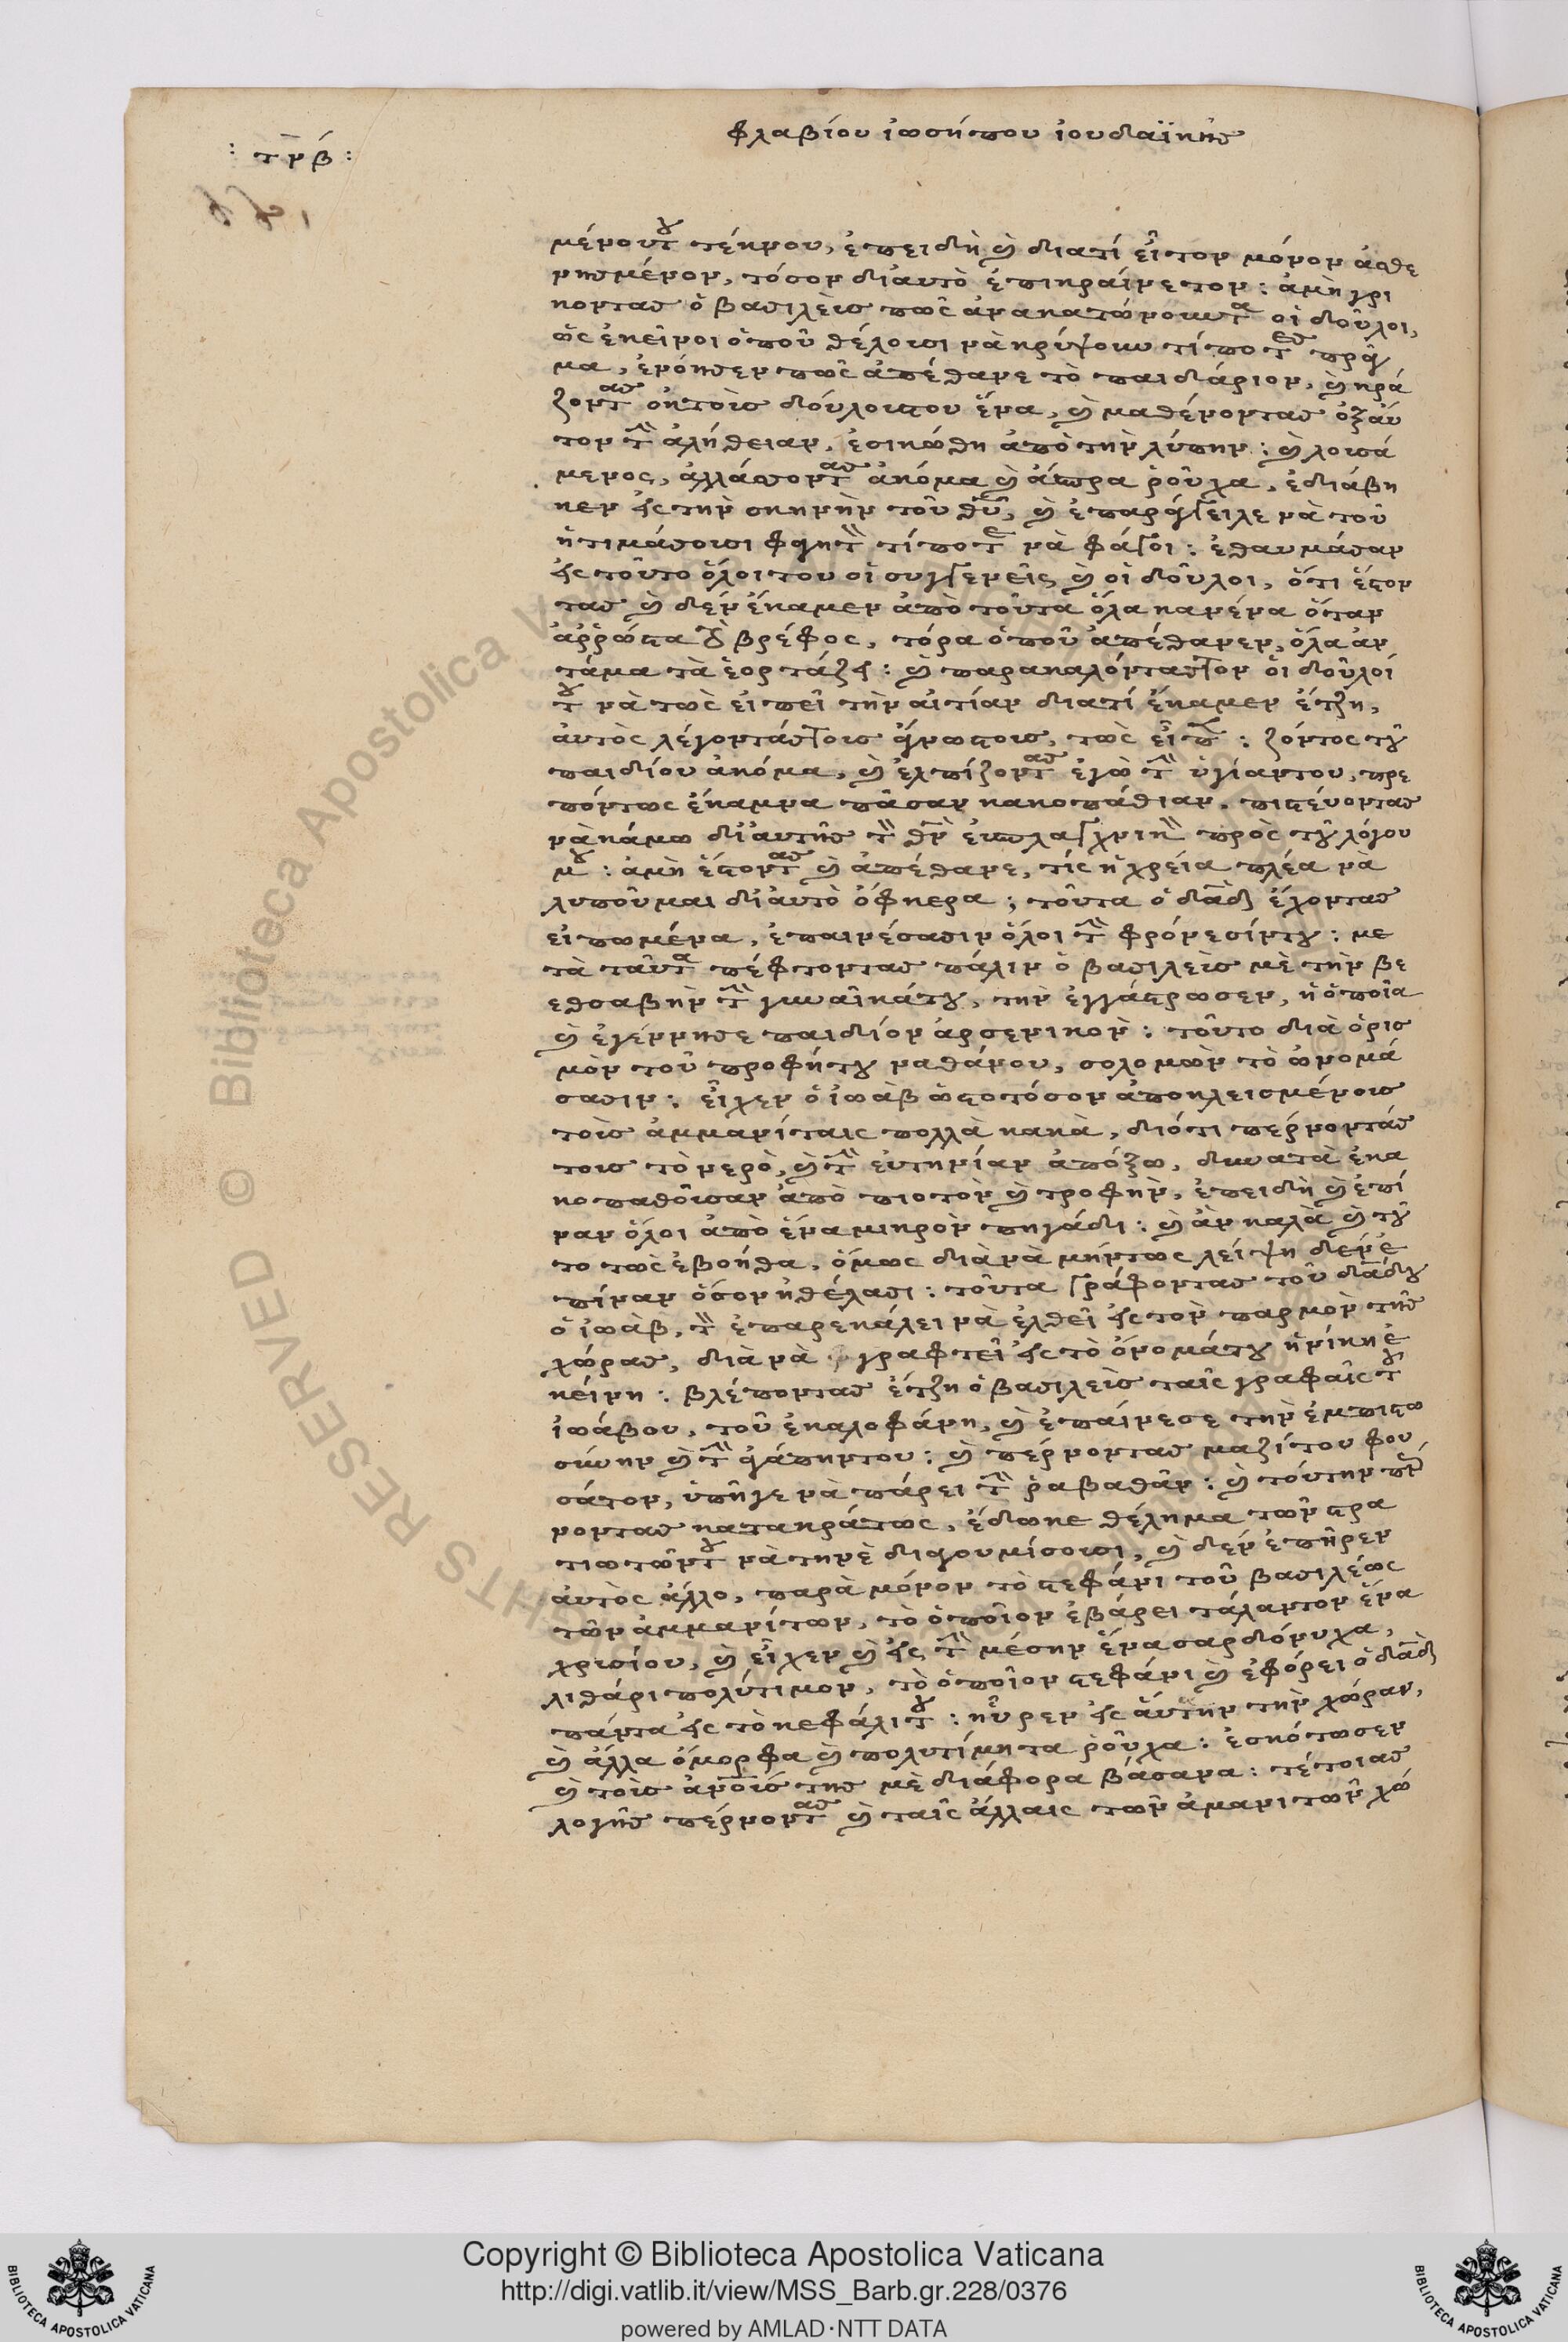 φλαβίου ἰωσήπου ἰουδαϊκῆς
: τκβ :
μένου του τέκνου, ἐπειδὴ καὶ διατί εἶτον μόνον ἀσθε
νησμένον, τόσον δι αὐτὸ ἐπικραίνετον : ἀμὴ γρι
κοντας ὁ βασιλεὺς πῶς ἀνακατώνουνται οἱ δοῦλοι,
ὡς ἐκεῖνοι ὁποῦ θέλουσι νὰ κρύψουν τίποτες πρᾶγ
μα, ἐνόησεν πῶς ἀπέθανε τὸ παιδάριον, καὶ κρά
ζοντας ἐκ τοὺς δούλους του ἕνα, καὶ μαθένοντας ὀξ αὐ
τον τὴν ἀλήθειαν, ἐσικώθη ἀπὸ τὴν λύπην : καὶ λουσά
μενος, ἀλλάσσοντας ἀκόμα καὶ ἄσπρα ῥοῦχα, ἐδιάβη
κεν εἰς τὴν σκηνὴν τοῦ θῦ, καὶ ἐπαράγγειλε νὰ τοῦ
ἡτιμάσουσι φαγητὸν τίποτε νὰ φάγοι : ἐθαυμάσαν
εἰς τοῦτο ὅλοι του οἱ συγγενεῖς καὶ οἱ δοῦλοι, ὅτι ἔστον
τας καὶ δὲν ἔκαμεν ἀπὸ τοῦτα ὅλα κανένα ὅταν
ἀῤῥώστα τὸ βρέφος, τόρα ὁποῦ ἀπέθανεν, ὅλα ἀν
τάμα τὰ ἑορτάζει : καὶ παρακαλόντας τον οἱ δοῦλοί
του νὰ τὼς εἰπεῖ τὴν αἰτίαν διατί ἔκαμεν ἔτζη,
αὐτὸς λέγοντάς τους ἄγνωστους, τὼς εἶπεν : ζόντος τοῦ
παιδίου ἀκόμα, καὶ ἐλπίζοντας ἐγὼ τὴν ὑγίαν του, πρε
πόντως ἔκαμνα πᾶσαν κακοπάθιαν, πιστεύοντας
νὰ κάμω δι αὐτῆς τὸν θν ἐυσπλαγχνικὸν πρὸς τοῦ λόγου
μου : ἀμὴ ἔστοντας καὶ ἀπέθανε, τίς ἡ χρεία πλέα νὰ
λυποῦμαι δι αὐτὸ ὄφκερα ; τοῦτα ὁ δαδ ἔχοντας
εἰπωμένα, ἐπαινέσασιν ὅλοι τὴν φρόνεσίν του : με
τὰ ταῦτα πέφτοντας πάλιν ὁ βασιλεὺς μὲ τὴν βε
εθσαβὴν τὴν γυναῖκά του, τὴν ἐγγάστρωσεν, ἡ ὁποῖα
καὶ ἐγέννησε παιδίον ἀρσενικὸν : τοῦτο διὰ ὁρισ
μὸν τοῦ προφήτου ναθάνου, σολομῶν τὸ ὠνομά
σασιν : εἶχεν ὁ ἰωὰβ ὡστοτόσον ἀποκλεισμένους
τοὺς ἀμμανίταις πολλὰ κακὰ, διότι πέρνοντάς
τους τὸ νερὸ, καὶ τὴν εὐτηνίαν ἀπόξω, δυνατὰ ἐκα
κοπαθοῦσαν ἀπὸ πιοτὸν καὶ τροφὴν, ἐπειδὴ καὶ ἐπί
ναν ὅλοι ἀπὸ ἕνα μικρὸν πηγάδι : καὶ ἂν καλὰ καὶ τοῦ
το τὼς ἐβοήθα, ὅμως διὰ νὰ μήντως λείψη δὲν ἐ
πίναν ὅσον ἠθέλασι : τοῦτα γράφοντας τοῦ δαδίου
ὁ ἰωὰβ, τὸν ἐπαρεκάλει νὰ ἐλθεῖ εἰς τὸν παρμὸν τῆς
χώρας, διὰ νὰ γραφτεῖ εἰς τὸ ὄνομάτου ἡ νίκη ἐ
κείνη : βλέποντας ἔτζη ὁ βασιλεὺς ταῖς γραφαῖς τοῦ
ἰωάβου, τοῦ ἐκαλοφάνη, καὶ ἐπαίνεσε τὴν ἐμπιστο
σύνην καὶ τὴν ἀγάπην του : καὶ πέρνοντας μαζί του φου
σάτον, ὑπῆγε νὰ πάρει τὴν ῥαβαθᾶν : καὶ τούτην πέρ
νοντας κατακράτως, ἔδωκε θέλημα τῶν στρα
τιωτῶν του νὰ τηνὲ διαγουμίσουσι, καὶ δὲν ἐπῆρεν
αὐτὸς ἄλλο, παρὰ μόνον τὸ στεφάνι τοῦ βασιλέως
τῶν ἀμμανίτων, τὸ ὁποῖον ἐβάρει τάλαντον ἕνα
χρυσίου, καὶ εἶχεν καὶ εἰς τὴν μέσην ἕνα σαρδόνυχα,
λιθάρι πολύτιμον, τὸ ὁποῖον στεφάνι καὶ ἐφόρει ὁ δαδ
πάντα εἰς τὸ κεφάλι του : ηὗρεν εἰς αὐτὴν τὴν χώραν,
καὶ ἄλλα ὄμορφα καὶ πολυτίμητα ῥοῦχα : ἐσκότωσεν
καὶ τοὺς ἀνοὺς της μὲ διάφορα βάσανα : τέτοιας
λογῆς πέρνοντας καὶ ταῖς ἄλλαις τῶν ἀμανιτῶν χώ
Copyright © Biblioteca Apostolica Vaticana
http://digi.vatlib.it/view/MSS_Barb.gr.228/0376
powered by AMLAD·NTT DATA
BIBLIOTECA APOSTOLICA VATICANA
BIBLIOTECA APOSTOLICA VATICANA